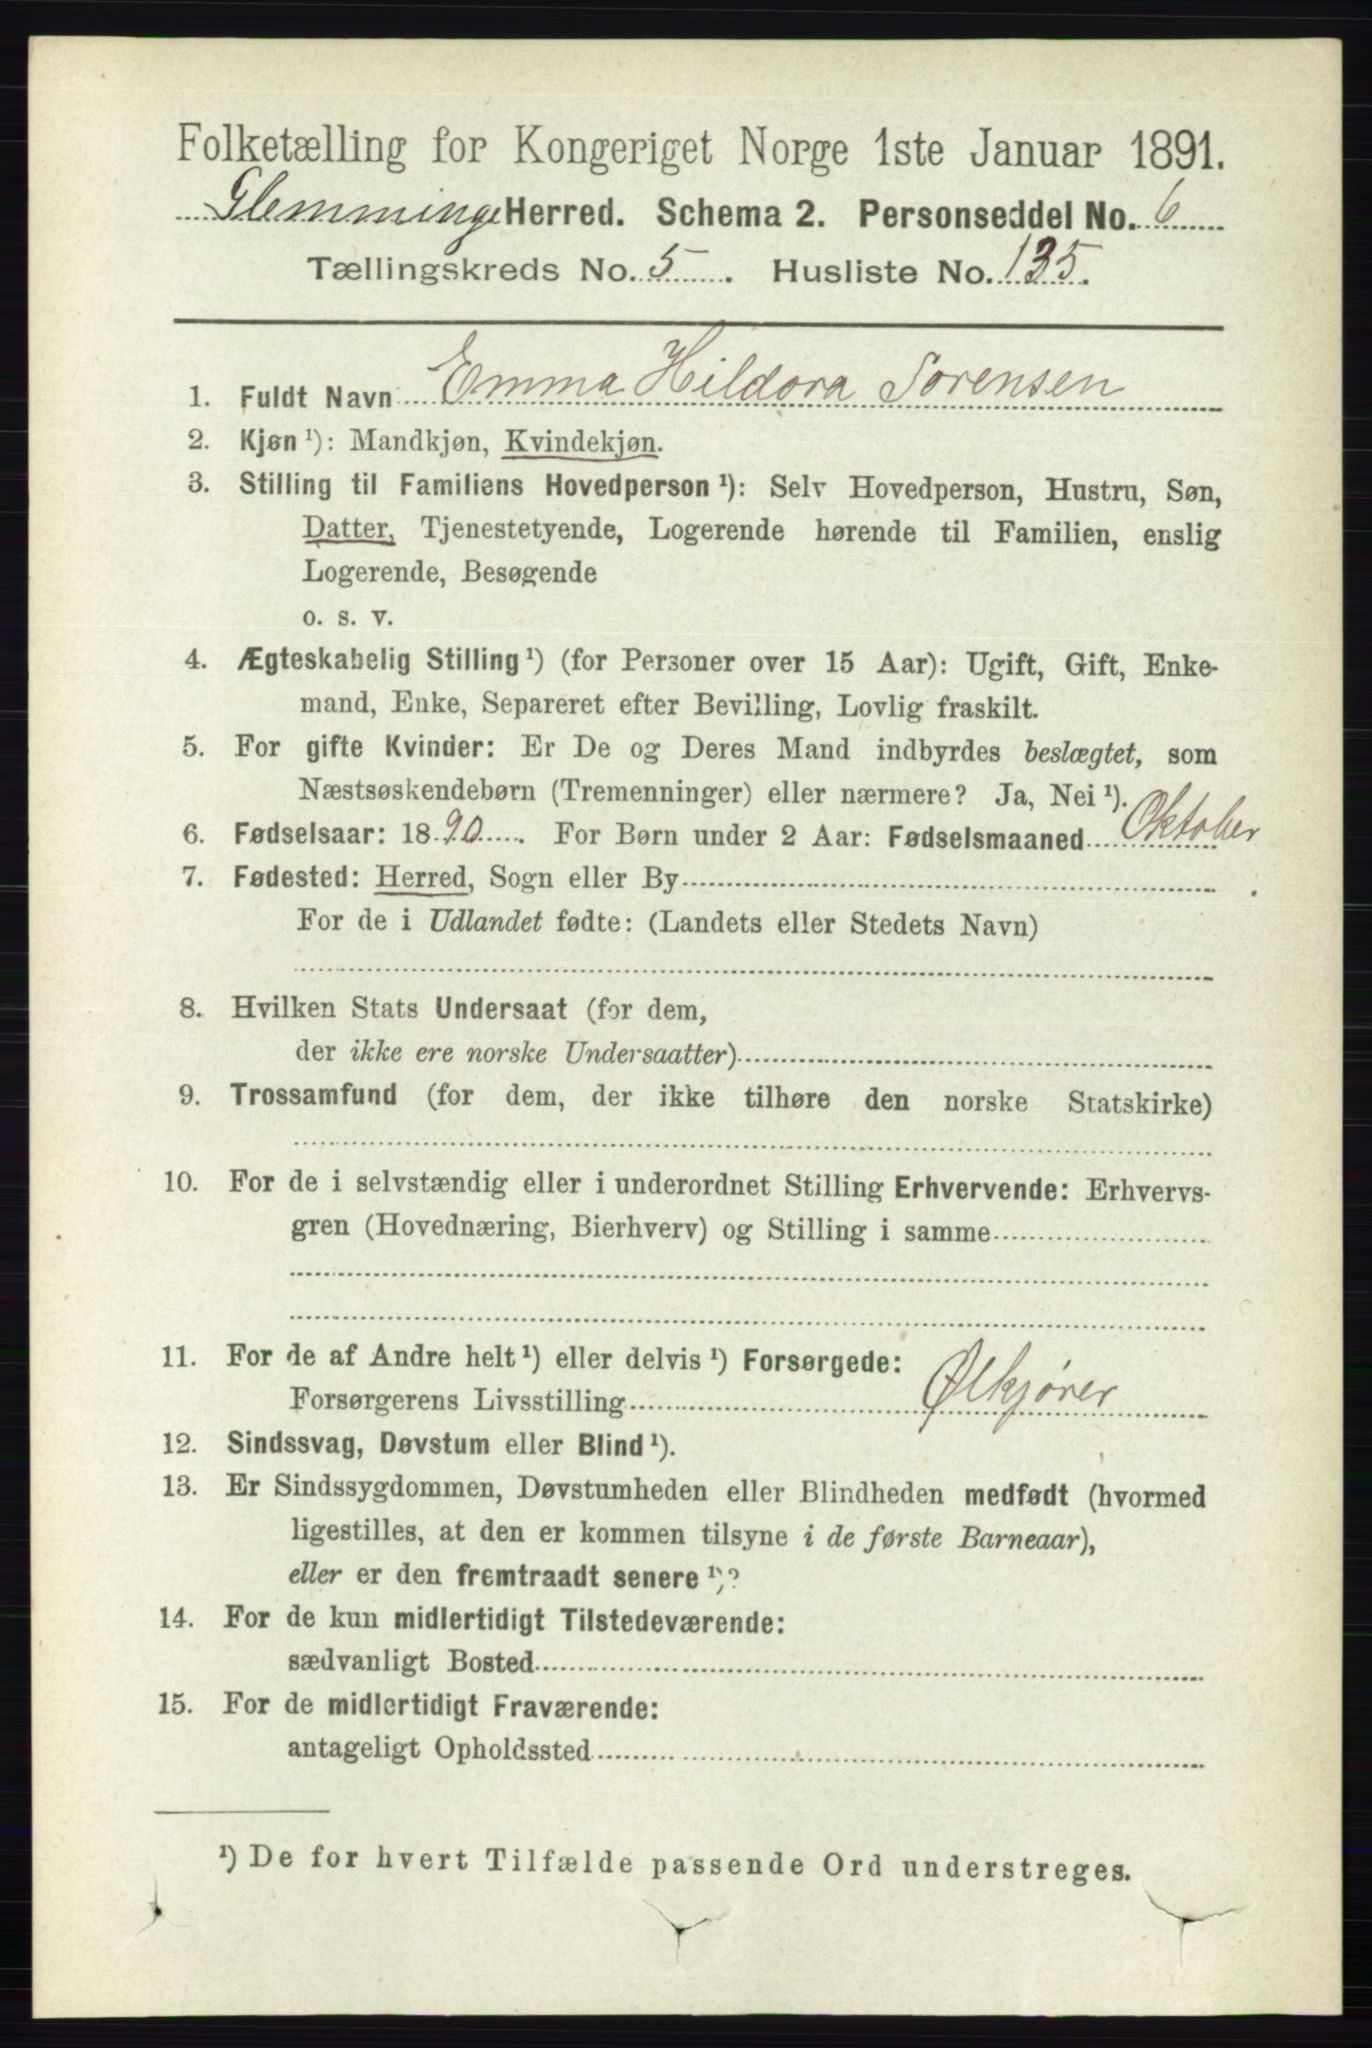 Folketælling for Kongeriget Norge 1ste Januar 1891.
Glemminge Herred. Schema 2. Personseddel No. 6
Tællingskreds No. 5. Husliste No. 135.
1. Fuldt Navn Emma Hildora Sorensen
2. Kjøn ¹): Mandkjøn, Kvindekjøn.
3. Stilling til Familiens Hovedperson ¹): Selv Hovedperson, Hustru, Søn,
Datter, Tjenestetyende, Logerende hørende til Familien, enslig
Logerende, Besøgende
o. s. v.
4. Ægteskabelig Stilling ¹) (for Personer over 15 Aar): Ugift, Gift, Enke-
mand, Enke, Separeret efter Bevilling, Lovlig fraskilt.
5. For gifte Kvinder: Er De og Deres Mand indbyrdes beslægtet, som
Næstsøskendebørn (Tremenninger) eller nærmere? Ja, Nei ¹).
6. Fødselsaar: 1890. For Børn under 2 Aar: Fødselsmaaned Oktober
7. Fødested: Herred, Sogn eller By
For de i Udlandet fødte: (Landets eller Stedets Navn)
8. Hvilken Stats Undersaat (for dem,
der ikke ere norske Undersaatter)
9. Trossamfund (for dem, der ikke tilhøre den norske Statskirke)
10. For de i selvstændig eller i underordnet Stilling Erhvervende: Erhvervs-
gren (Hovednæring, Bierhverv) og Stilling i samme
11. For de af Andre helt ¹) eller delvis ¹) Forsørgede:
Forsørgerens Livsstilling Ølkjører
12. Sindssvag, Døvstum eller Blind ¹).
13. Er Sindssygdommen, Døvstumheden eller Blindheden medfødt (hvormed
ligestilles, at den er kommen tilsyne i de første Barneaar),
eller er den fremtraadt senere ¹)?
14. For de kun midlertidigt Tilstedeværende:
sædvanligt Bosted
15. For de midlertidigt Fraværende:
antageligt Opholdssted
¹) De for hvert Tilfælde passende Ord understreges.